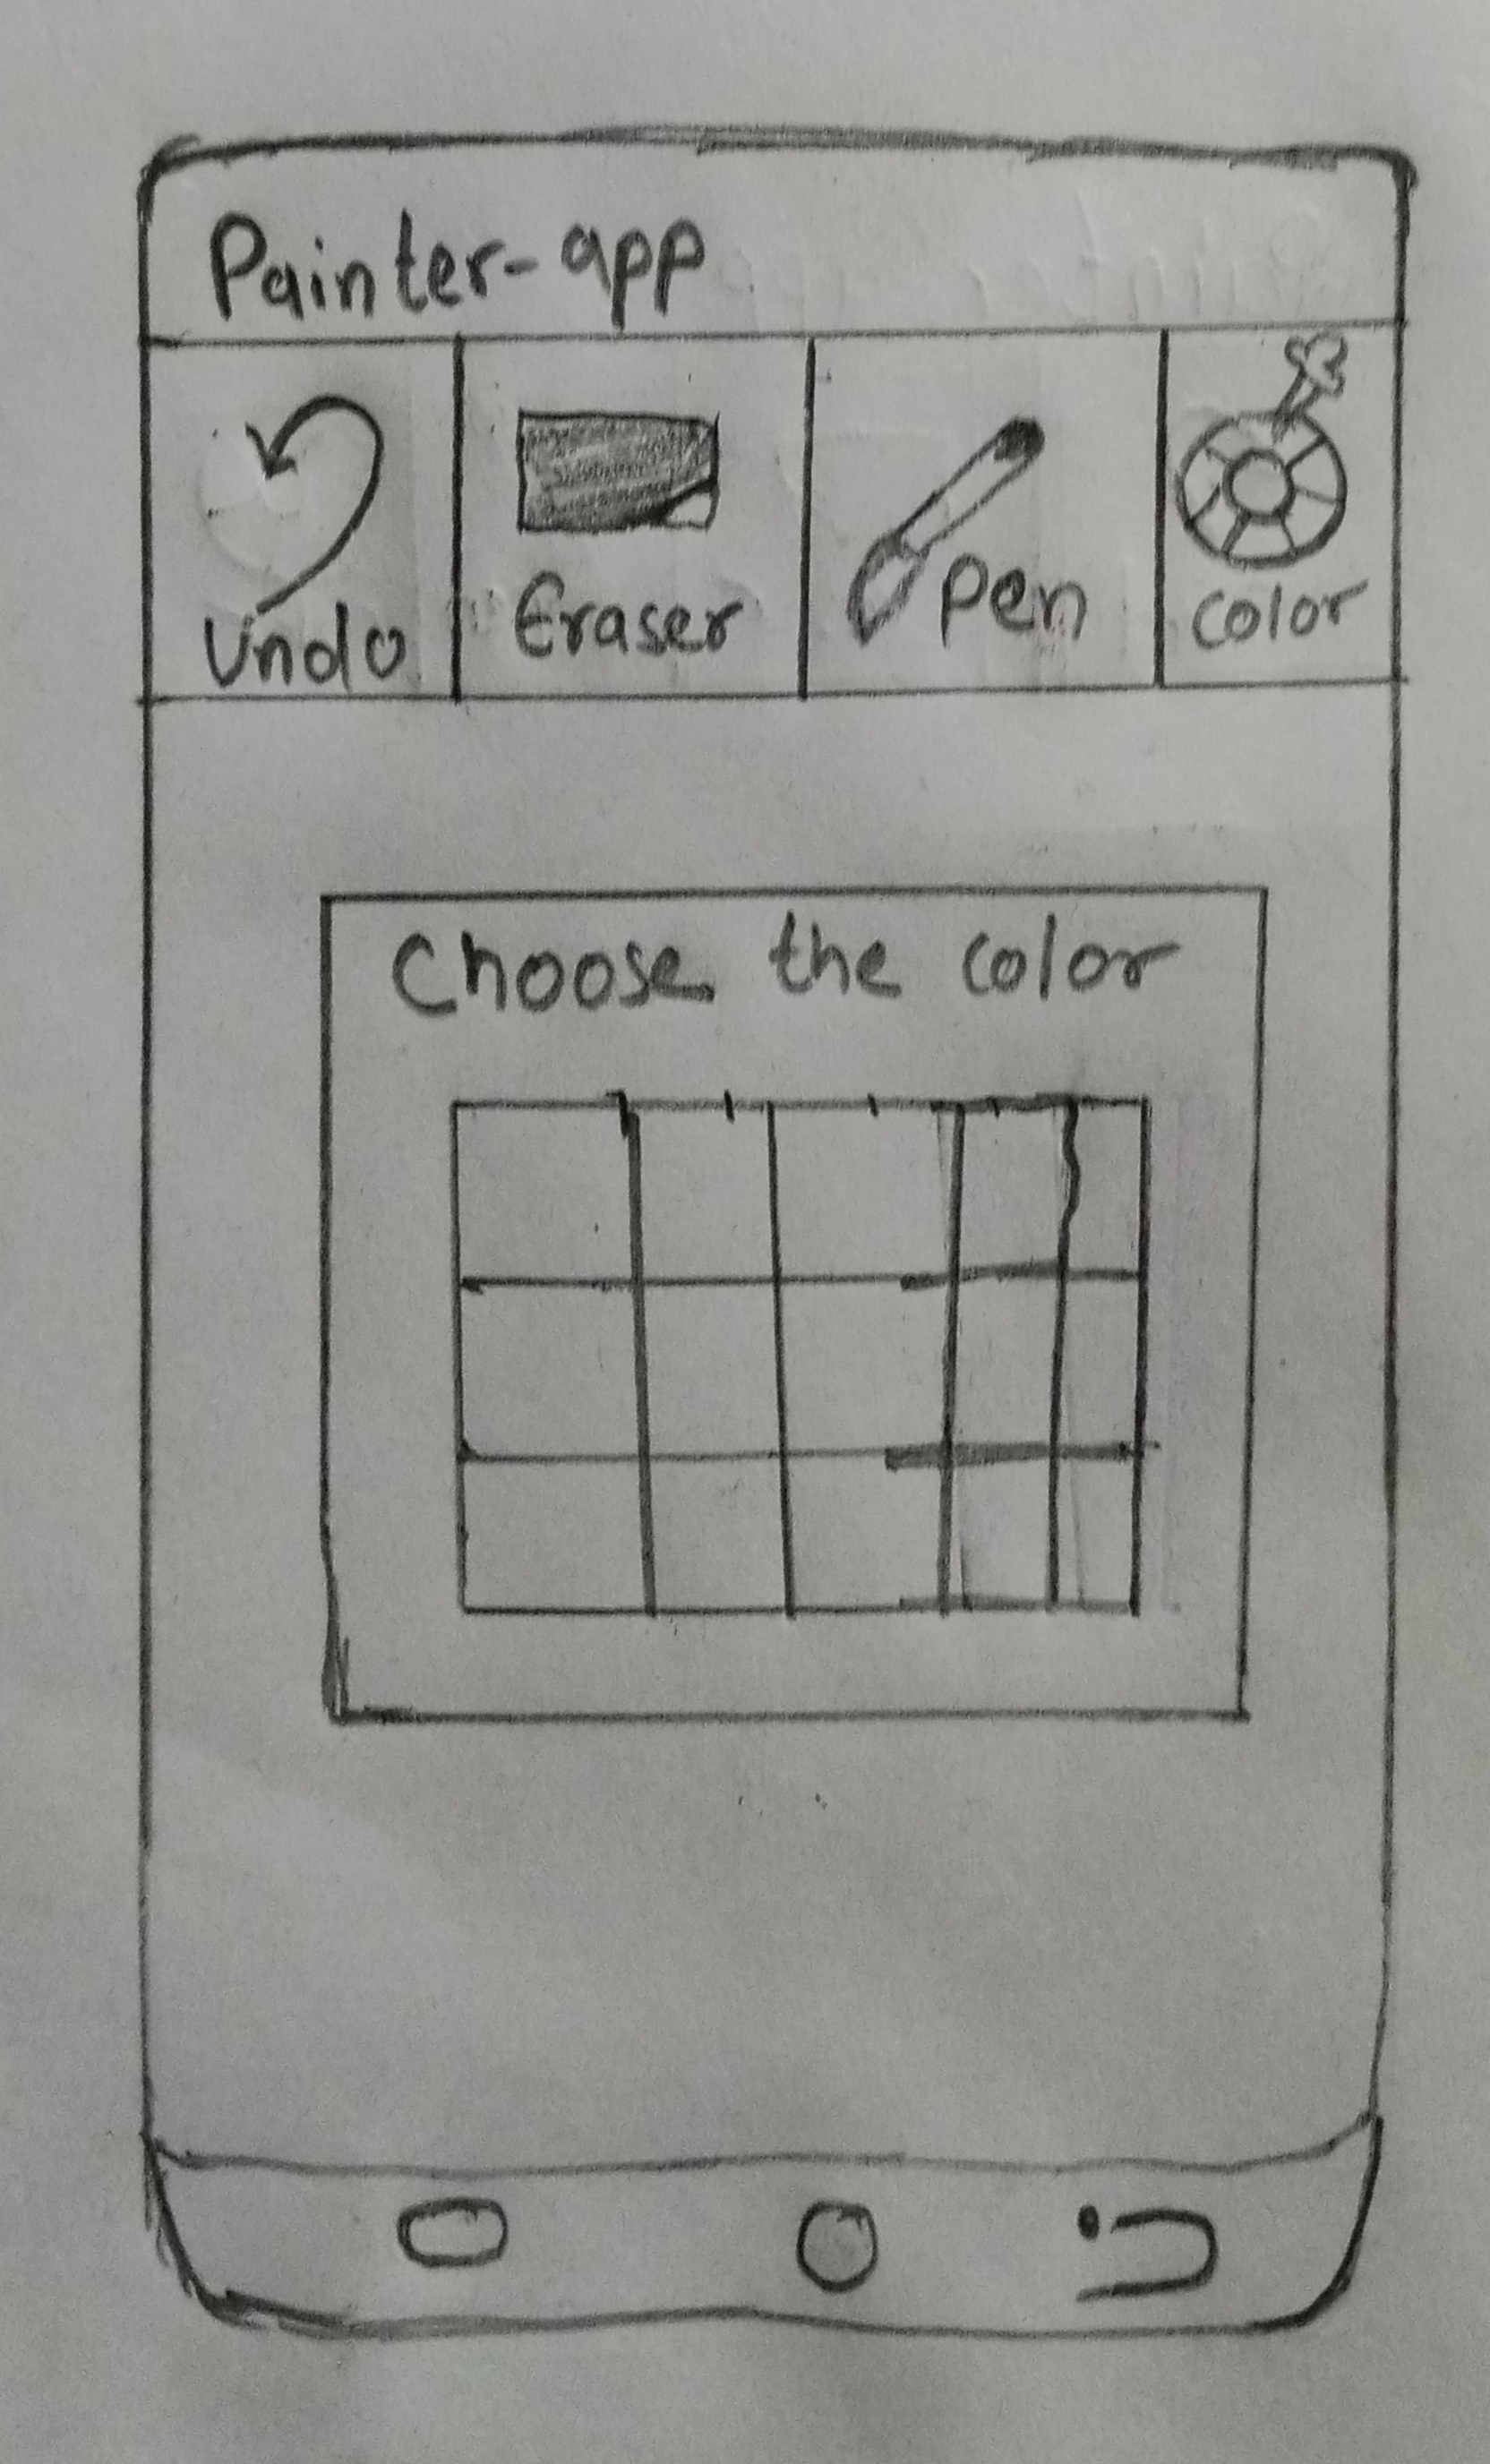 Painter-app
Undo Eraser Pen Color
Choose the color